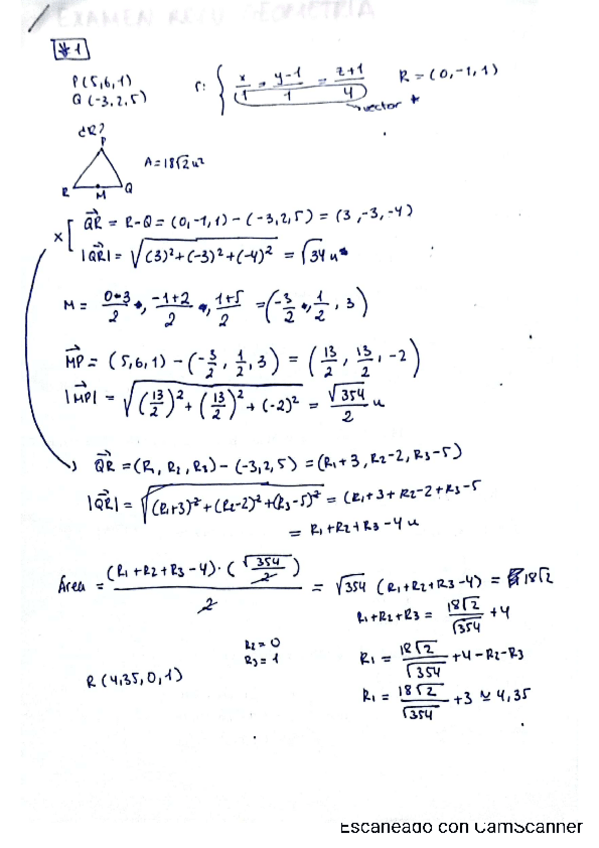 EXAMEN RECU GEOMETRIA
#1
P(5,6,1)
Q(-3,2,5)
r: { x/1 = y-1/1 = z+1/4 R=(0,-1,1)
vector
¿R?
P
A=18√2 u²
R M Q
x [ QR = R-Q = (0,-1,1) - (-3,2,5) = (3,-3,-4)
|QR| = √(3)²+(-3)²+(-4)² = √34 u
M = 0-3/2, -1+2/2, 1+5/2 = (-3/2, 1/2, 3)
MP = (5,6,1) - (-3/2, 1/2, 3) = (13/2, 13/2, -2)
|MP| = √(13/2)²+(13/2)²+(-2)² = √354/2 u
QR = (R1, R2, R3) - (-3,2,5) = (R1+3, R2-2, R3-5)
|QR| = √(R1+3)²+(R2-2)²+(R3-5)² = (R1+3+R2-2+R3-5
= R1+R2+R3-4 u
Área = (R1+R2+R3-4)·(√354/2)/2 = √354 (R1+R2+R3-4) = 18√2
R1+R2+R3 = 18√2/√354 +4
R2=0
R3=1
R1 = 18√2/√354 +4-R2-R3
R(4,35,0,1)
R1 = 18√2/√354 +3 ≃ 4,35
Escaneado con CamScanner